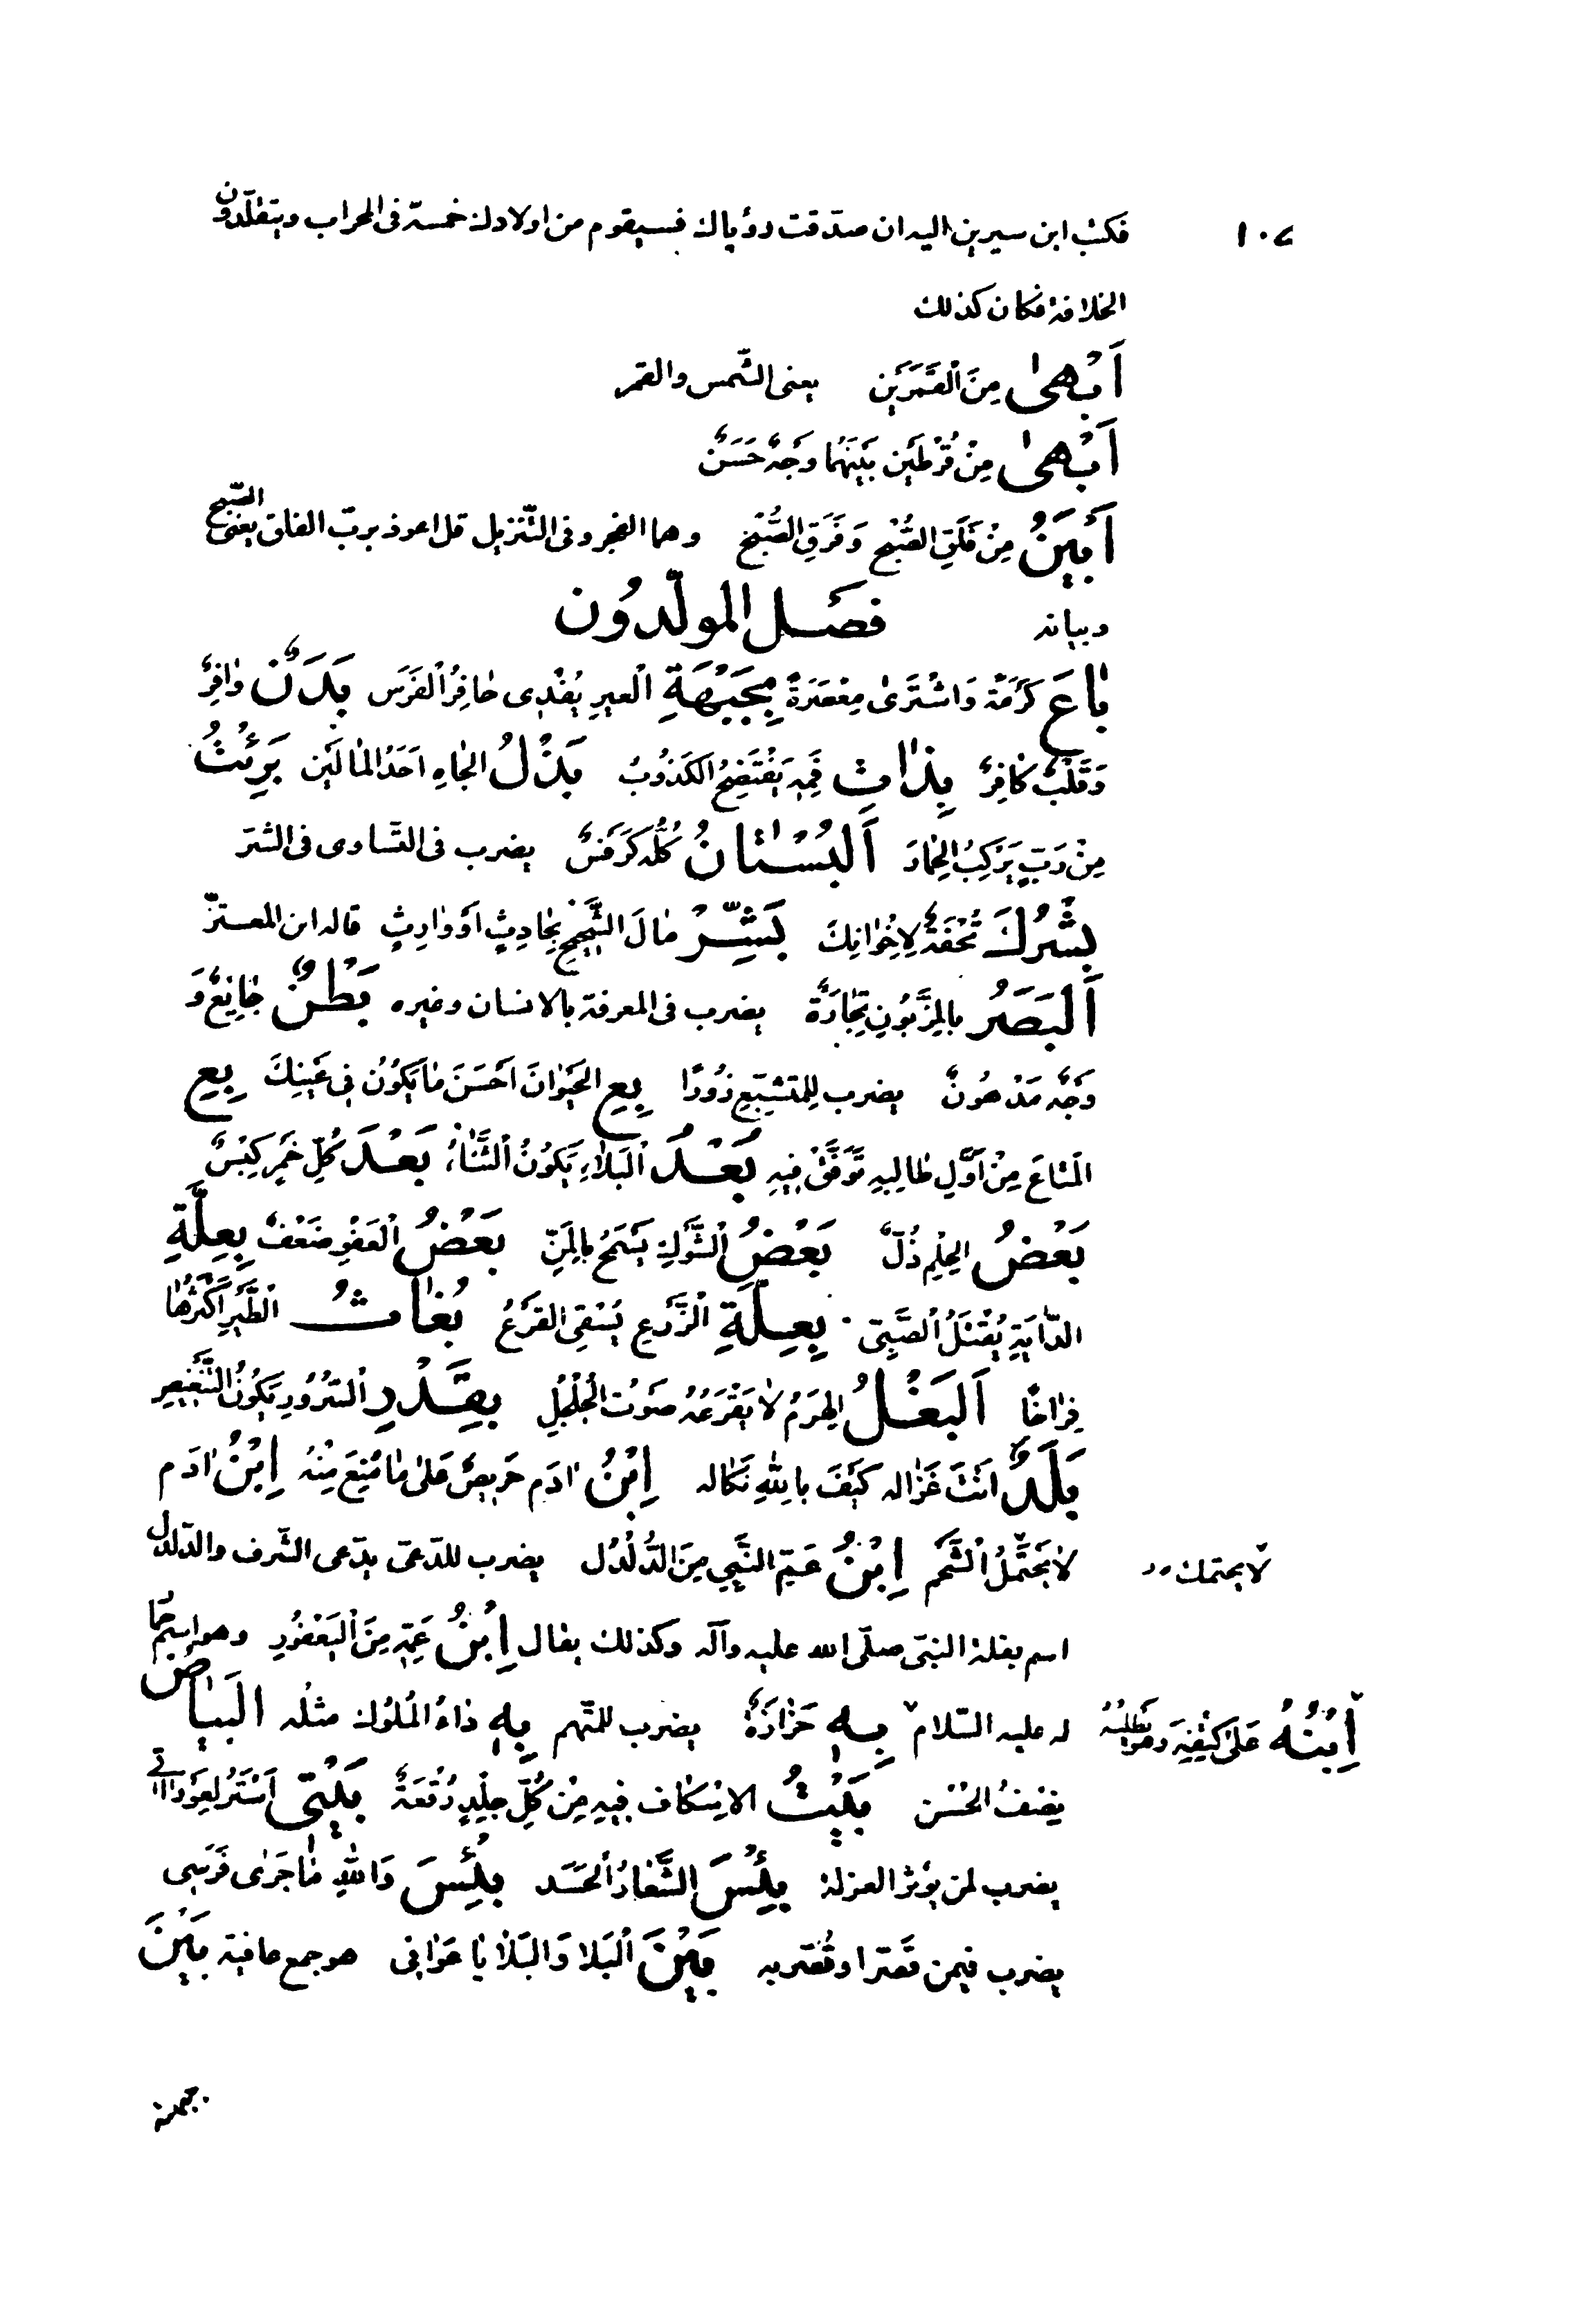 ١٠٤
فكتب ابن سيرين اليه ان صدّقت رؤياك فسيقوم من اولادك خمسة فى المحراب ويتقلّدون
الخلافة فكان كذلك
اَبْهىٰ مِنَ الْقَمَرَيْنِ يعنى الشّمس والقمر
اَبْهىٰ مِنْ قُرْطَيْنِ بَيْنَهُمٰا وَجْهٌ حَسَنٌ
اَبْيَنُ مِنْ فَلَقِ الصُّبْحِ وَفَرَقِ الصُّبْحِ وهما الفجر وفى التّنزيل قل اعوذ بربّ الفلق يعنى الصّبح
وبيانه فصَل المولّدوُن
بٰاعَ كَرْمَهٌ وَاشْتَرىٰ مِعْصَرَةً بِجَبْهَةِ الْعيرِ يُفْدٖى حٰافِرُ الْفَرَسِ بَدَنٌ وٰافِرٌ
وَقَلْبٌ كٰافِرٌ بِذٰاتِ فَمِهٖ يَفْتَضِحُ الكَذُوبُ بَذْلُ الجٰاهِ اَحَدُ المٰالَيْنِ بَرِئْتُ
مِنْ رَبٍّ يَرْكَبُ الحِمٰارَ اَلْبُسْتٰانُ كُلُّهُ كَرَفْسٌ يضرب فى التّساوى فى الشّرّ
بِشْرُكَ تُحْفَةٌ لِاِخْوٰانِكَ بَشِّرْ مٰالَ الشَّحٖيحِ بِحٰادِثٍ اَوْ وٰارِثٍ قاله ابن المعتزّ
اَلْبَصَرُ بالزَّبُونِ تِجٰارَةٌ يضرب فى المعرفة بالانسان وغيره بَطْنٌ جٰائِعٌ وَ
وَجْهٌ مَدْهُونٌ يضرب لِلمتشبّعِ زُورًا بِعِ الحَيَوٰانَ اَحْسَنَ مٰا يَكُونُ فى عَيْنِكَ بِعِ
المَتٰاعَ مِنْ اَوَّلِ طٰالِبِهٖ تُوَفَّقْ فيهِ بَعْدَ الْبَلٰاءِ يَكُونُ الثَّنٰاءُ بَعْدَ كُلِّ خُسْرٍ كَيْسٌ
بَعْضُ الحِلْمِ ذُلٌّ بَعْضُ الشَّوْكِ يَسْمَحُ بالْمَنِّ بَعْضُ الْعَفْوِ ضَعْفٌ بِعِلَّةِ
الدّٰايَةِ يُقْتَلُ الصَّبِىّ بِعِلَّةِ الزَّرْعِ يُسْقَى القَرْعُ بُغٰاثُ الطَّيْرِ اَكْثَرُهٰا
فِرٰاخًا اَلْبَغْلُ الهَرِمُ لٰا يُفْزِعُهُ صَوْتُ الْجُلْجُلِ بِقَدْرِ السُّرُورِ يَكُونُ التَّنْغيصُ
بَلَدٌ اَنْتَ غَزٰاله كَيْفَ بِاللّٰهِ نَكٰاله اِبْنُ اٰدَم حَريصٌ عَلىٰ مٰا مُنِعَ مِنْهُ اِبْنُ اٰدَم
لٰا يَحْتَمِلُ الشَّحْم اِبْنُ عَمِّ النَّبِىِ مِنَ الدُّلْدُل يضرب للدّعىّ يدّعى الشّرف والدّلدل
لا يحتمك
اسم بغلة النبّى صلّى الله عليه وآله وكذلك يقال اِبْنُ عَمِّهٖ مِنَ الْيَعْفُورِ وهو اسم حمار
له عليه السّلام بِهٖ حَرٰارَةٌ يضرب للمتّهم بِهٖ دٰاءُ المُلُوك مثله البَيٰاضُ
اِبْنُهُ عَلىٰ كَتِفِهٖ وَهُوَ يَطْلُبُهُ
نِصْفُ الحُسْنِ بَيْتُ الاِسْكاف فيهِ مِنْ كُلِّ جِلْدٍ رُقْعَةٌ بَيْتى اَسْتَرُ لِعَوْرٰاتى
يضرب لمن يؤثر العزلة بِئْسَ الشِّعٰارُ الحَسَد بِئْسَ وَاللّٰهِ مٰا جَرٰى فَرَسٖى
يضرب فيمن قَصّر او قُصّر به بَيْنَ الْبَلٰا وَالبَلٰايٰا عَوٰافى هو جمع عافية بَيْنَ